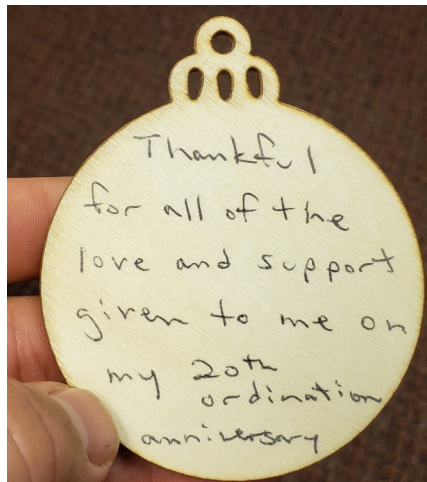 Thankful
for all of the
love and support
given to me on
my 20th
ordination
anniversary